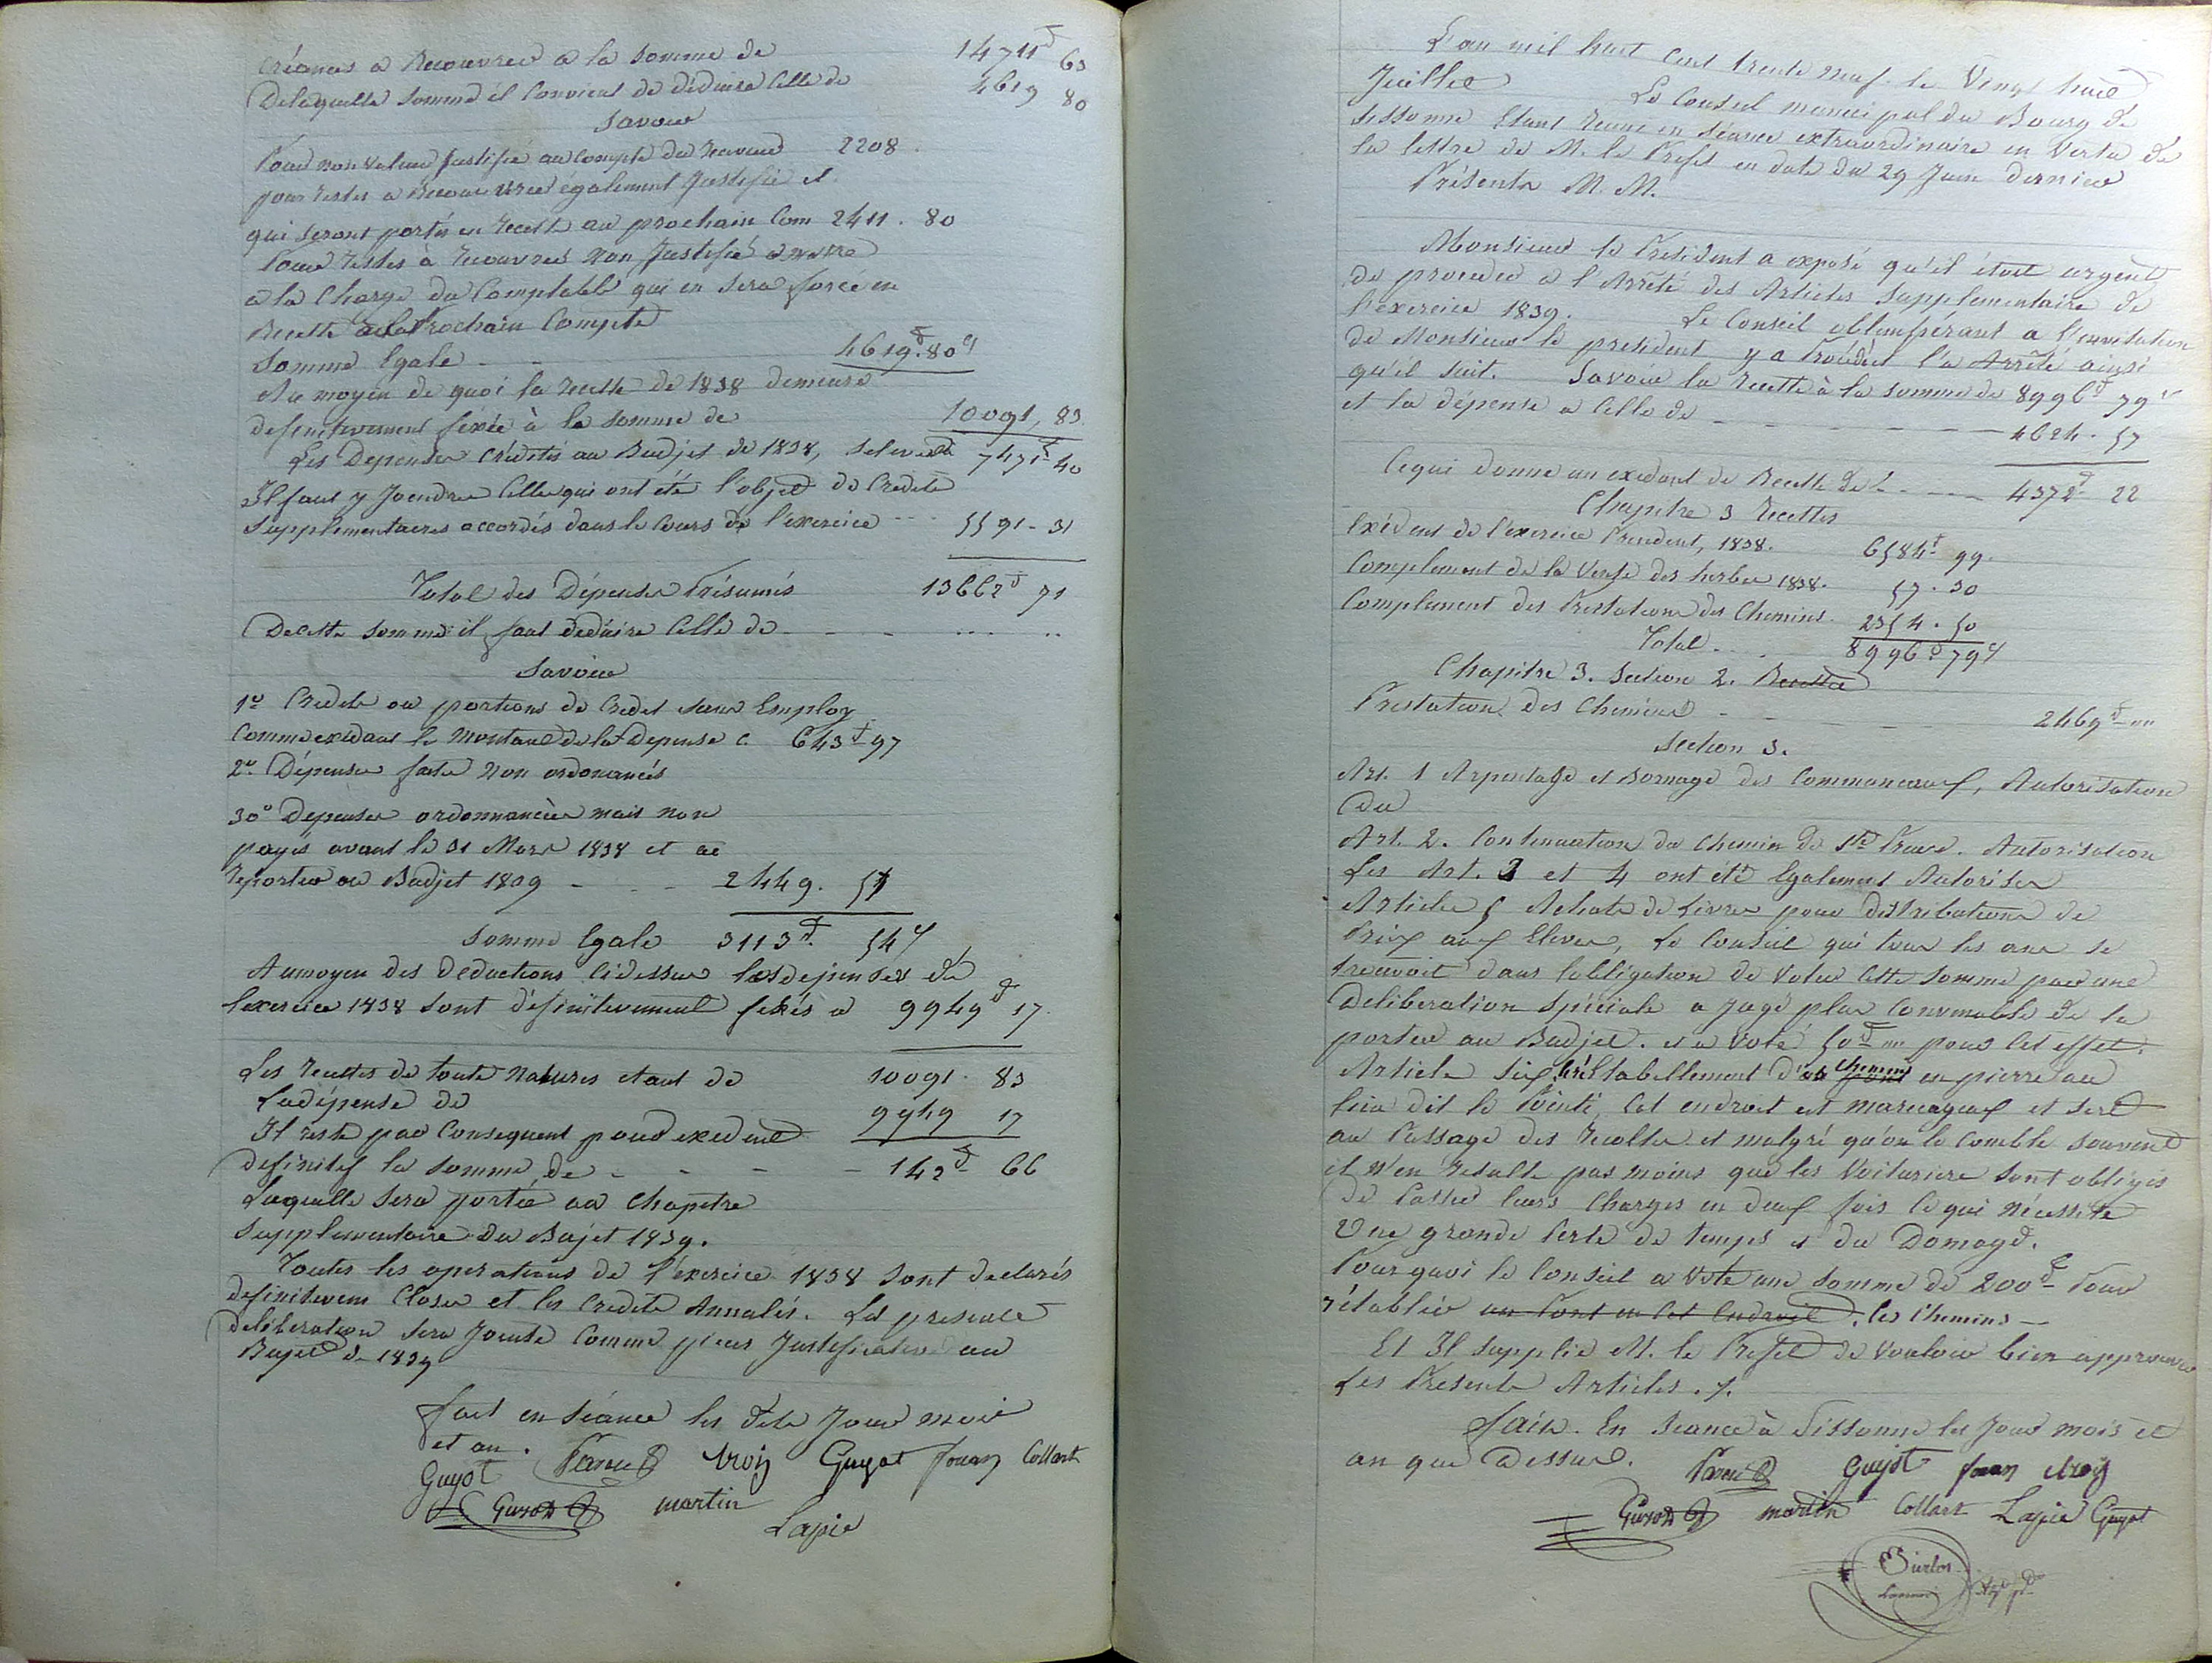 Créances a Recouvrer a la somme de 14711f 63
De laquelle somme il convient de déduire Celle de 4619 80
Savoir
Pour non valeur Justifié au compte du Receveur 2208 .
pour restes a Recouvrer également Justifié et
qui seront portés en recette au prochain Com 2411 . 80
Pour restes à recouvrer Non Justifié a mettre
a la Charge du Comptable qui en sera forcé en
Recette au Prochain Compte
Somme Egale 4619f. 80c
Au moyen de quoi la recette de 1838 demeure
definitivement fixée à la somme de 10091, 83
Les Depenses Créditées au Budjet de 1838, 7471f 40
Il faut y Joindre Celles qui ont été l'objet de Credits
Supplementaires accordés dans le Cours de l'exercice 5591 - 31
Total des Dépenses Présumés 13662f 71
De cette somme il faut deduire Celle de
Savoir
1o Credits ou portions de Credit sans Employ
Comme excedant le montant de la Depense c. 643f 97
2o. Dépenses faites Non ordonancés
30o Depenses ordonnancées mais non
payés avant le 31 Mars 1838 et a
reporter au Budjet 1809 - - - 2449. 57
Somme Egale 3113f. 54c
Au moyen des deductions cidessus les depenses de
l'exercice 1838 sont définitivement fixés a 9949f 17
Les recettes de toute Natures etant de 10091. 83
La dépense de 9949 17
Il reste par Consequent pour excedent
definitif la somme de - - - - 142f 66
Laquelle sera portée au Chapitre
Supplementaire du Bujet 1839.
Toutes les operations de l'éxercice 1838 sont declarés
definitivem Closes et les Credits Annulés. La presente
deliberation sera Jointe Comme pieces Justificative au
Bujet de 1839
fait en séance les dits Jour mois
et an.
Guyot Troij Guyot fouan Collart
martin
Lapie
L'an mil huit Cent trente neuf le Vingt huit
Juillet Le Conseil municipal du Bourg de
Sissonne Etant reuni en séance extraordinaire en Vertu de
la lettre de M. le Prefet en date du 29 Juin dernier
Présents M. M.
Monsieur le President a exposé qu'il étoit urgent
de proceder a l'Arrêté des Articles Supplementaire de
l'exercice 1839. Le Conseil obtempérant a l'invitation
de Monsieur le president y a Procédé et l'a Arrêté ainsi
qu'il suit. Savoir la recette à la somme de 8996f 79c
et la dépense a Celle de - - - - 4624. 57
Ce qui donne un excedant de Recette de - - - 4372f 22
Chapitre 3 Recettes
Excédent de l'exercice Precedent, 1838. 6584f 99
Complement de la Vente des herbes 1838. 57. 30
Complement des Prestations des Chemins. 2354. 50
Total. . . 8996f 79c
Chapitre 3. Section 2. Recette
Prestation des Chemins - - - 2469f
Section 3.
Art. 1 Arpentage et Bornage des Communeaux, Autorisation
du
Art. 2. Continuation du Chemin de Ste Preuve. Autorisation
Les Art. 3 et 4 ont été Egalement Autorisés
Article 5 Achats de Livres pour distributions de
Prix aux Eleves, Le Conseil qui tous les ans se
trouvoit dans l'obligation de Voter Cette somme par une
Deliberation Spéciale a Jugé plus Convenable de la
porter au Budjet. et a Voté 50f pour Cet effet.
Article Six Rétablissement d'un pont Chemins en pierre au
lieu dit le Pointi, Cet endroit est marecageux et sert
au Passage des recoltes et malgré qu'on le Comble souvent
il n'en resulte pas moins que les Voituriers sont obligés
de Passer leurs Charges en deux fois Ce qui nécessite
Une grande Perte de temps et du Domage.
Pourquoi le Conseil a Voté une somme de 200f Pour
rétablir un Pont en Cet Endroit. les Chemins —
Et Il supplie M. le Prefet de Vouloir bien approuver
Les Presents Articles. /.
fait. En Seance à Sissonne les Jour mois et
an que Dessus.
Guyot fouan troij
martin Collart Lapie Guyot